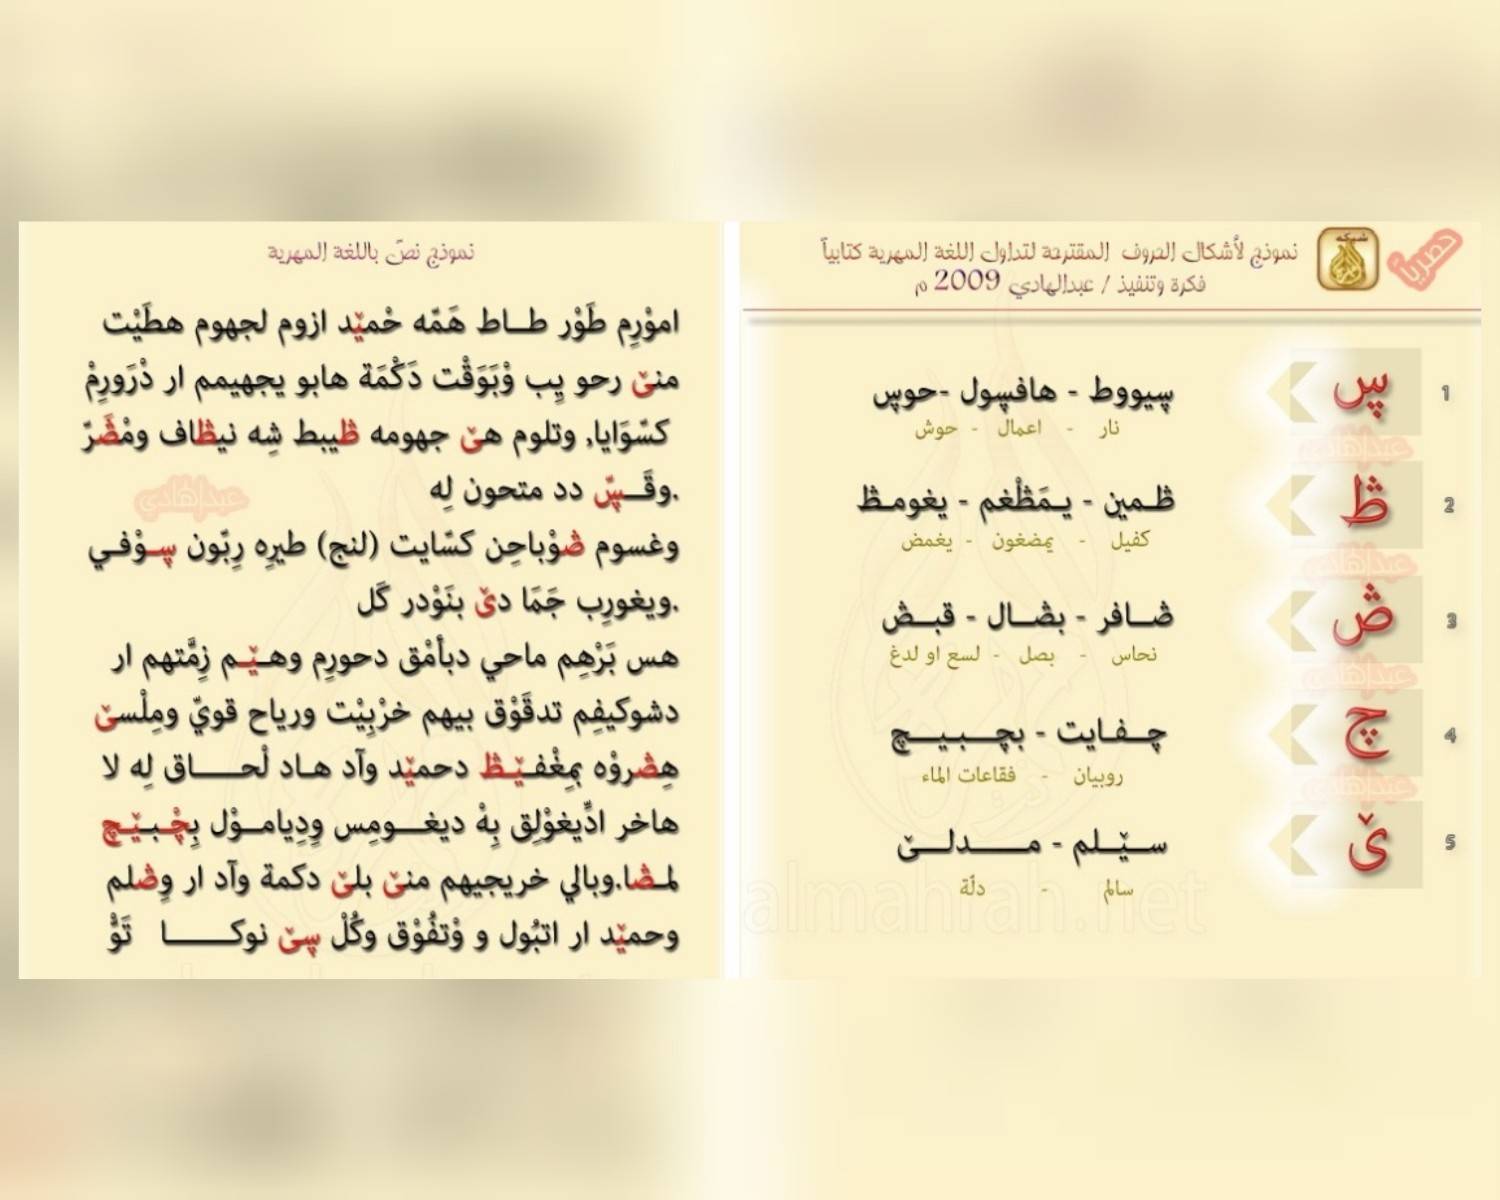 حصرياً
شبكة
نموذج لأشكال الحروف المقترحة لتداول اللغة المهرية كتابياً
فكرة وتنفيذ / عبدالهادي 2009 م
1 ڛ
ڛيووط - هافڛول -حوڛ
نار - اعمال - حوش
2 ڟ
ڟـمين - يـمَڟْغم - يغومـڟ
كفيل - يمضغون - يغمض
3 ۻ
ڞــافر - بڞــال - قبــڞ
نحاس - بصل - لسع او لدغ
4 چ
چــفـايت - بچــبـيــــچ
روبيان - فقاعات الماء
5 ێ
ســێــلم - مـــــدلـــێ
سالم - دلّة
عبدالهادي
almahrah.net
نموذج نصّ باللغة المهرية
اموْرِم طَوْر طــاط هَمّه حْمێد ازوم لجهوم هطَيْت
منێ رحو يِب وْبَوَقْت دَكْمَة هابو يجهيمم ار ذْرَورِمْ
كسّوَايا, وتلوم هێ جهومه ڟيبط شِه نيڟاف ومْڞَرّ
.وقَــڛّ دد متحون لِه
وغسوم ڞوْباحِن كسّايت (لنج) طيرِه رِبّون ڛـوْفـي
.ويغورِب جَمَا دێ بنَوْدر كَل
هس بَرْهِم ماحي دبأمْق دحورِم وهـێـم زِمَّتهم ار
دشوكيفِم تدقَوْق بيهم خرْبِيْت ورياح قويّ ومِلْسێ
هِڞروْه بمِغْفـێـڟ دحمێد وآد هـاد لْحـــــاق لِه لا
هاخر ادِّيغوْلِق بِهْ ديغـــومِس وِدِيامــوْل بِچْـبـێـچ
لمـڞا.وبالي خريجيهم منێ بلێ دكمة وآد ار وِڞلم
وحمێد ار اتبُول و وْتفُوْق وكُلْ ڛێ نوكـــــــا تَوُّ